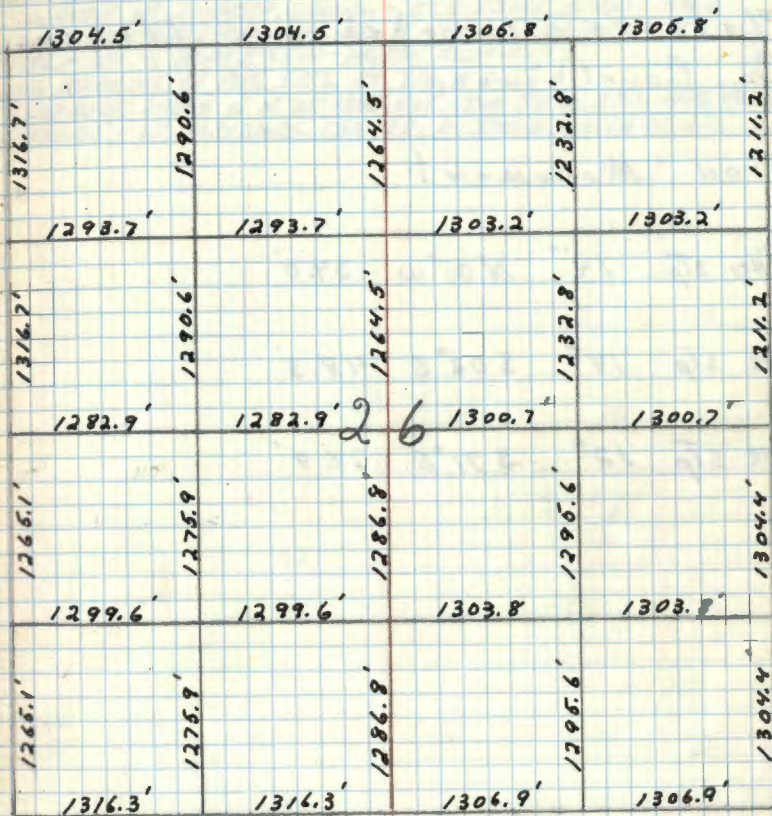 1304.5' 1304.5' 1305.8' 1305.8'
1316.7' 1290.6' 1264.5' 1232.8' 1211.2'
1293.7' 1293.7' 1303.2' 1303.2'
1316.7' 1290.6' 1264.5' 1232.8' 1211.2'
1282.9' 1282.9' 26 1300.7' 1300.7'
1265.1' 1275.9' 1286.8' 1295.6' 1304.4'
1299.6' 1299.6' 1303.8 1303.8'
1265.1' 1275.9' 1286.8' 1295.6' 1304.4'
1316.3' 1316.3' 1306.9' 1306.9'